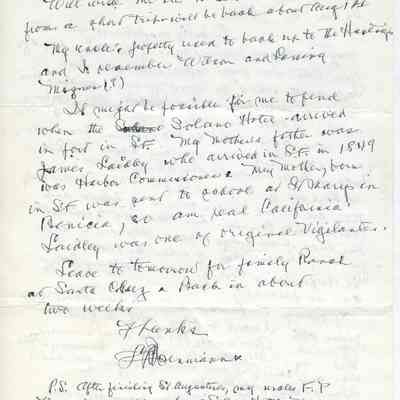 from a short trip will be back about Aug 1st
My uncle's property used to back up to the Hastings
and I remember Wilson and
Magner (?)
It might be possible for me to find
when the Solano Hotel arrived
in port in S.F. My mother's father was
James Laidley who arrived in S.F. in 1849
was Harbor Commissioner. My Mother, born
in S.F. was sent to school at St Marys in
Benicia, so am real California
Laidley was one of original Vigilantes.
Leave to tomorrow for family Ranch
at Santa Cruz & Back in about
two weeks
Thanks
P.S. After finishing St Augustines, my uncle F.P